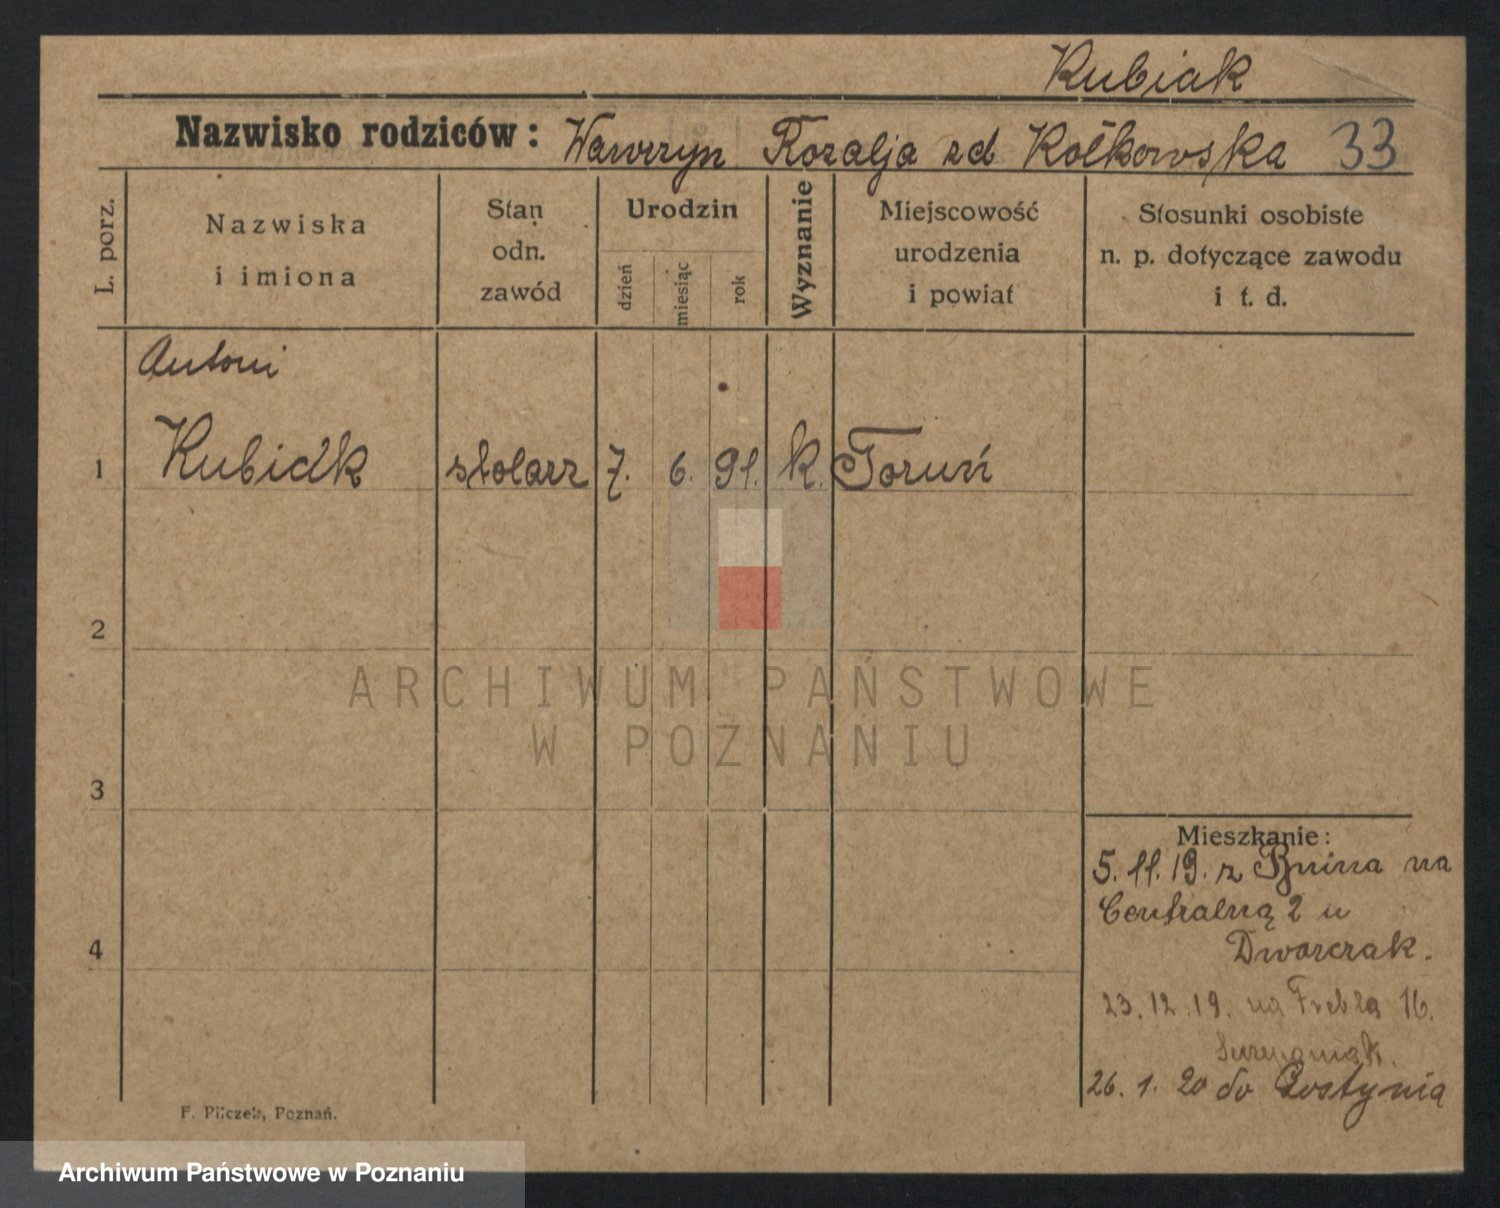 Kubiak
Nazwisko rodziców: Wawrzyn Rozalja zd Kołkowska 33
L. porz.
Nazwiska
i imiona
Stan
odn.
zawód
Urodzin
dzień
miesiąc
rok
Wyznanie
Miejscowość
urodzenia
i powiat
Stosunki osobiste
n. p. dotyczące zawodu
i t. d.
Antoni
1 Kubiak stolarz 7. 6. 91. k. Toruń
2
ARCHIWUM PAŃSTWOWE
W POZNANIU
3
Mieszkanie:
5.11.19. z Bnina na
Centralną 2 u
4
Dworczak.
23.12.19. na Frebla 16.
26.1.20 do Gostynia
F. Pilczek, Poznań.
Archiwum Państwowe w Poznaniu